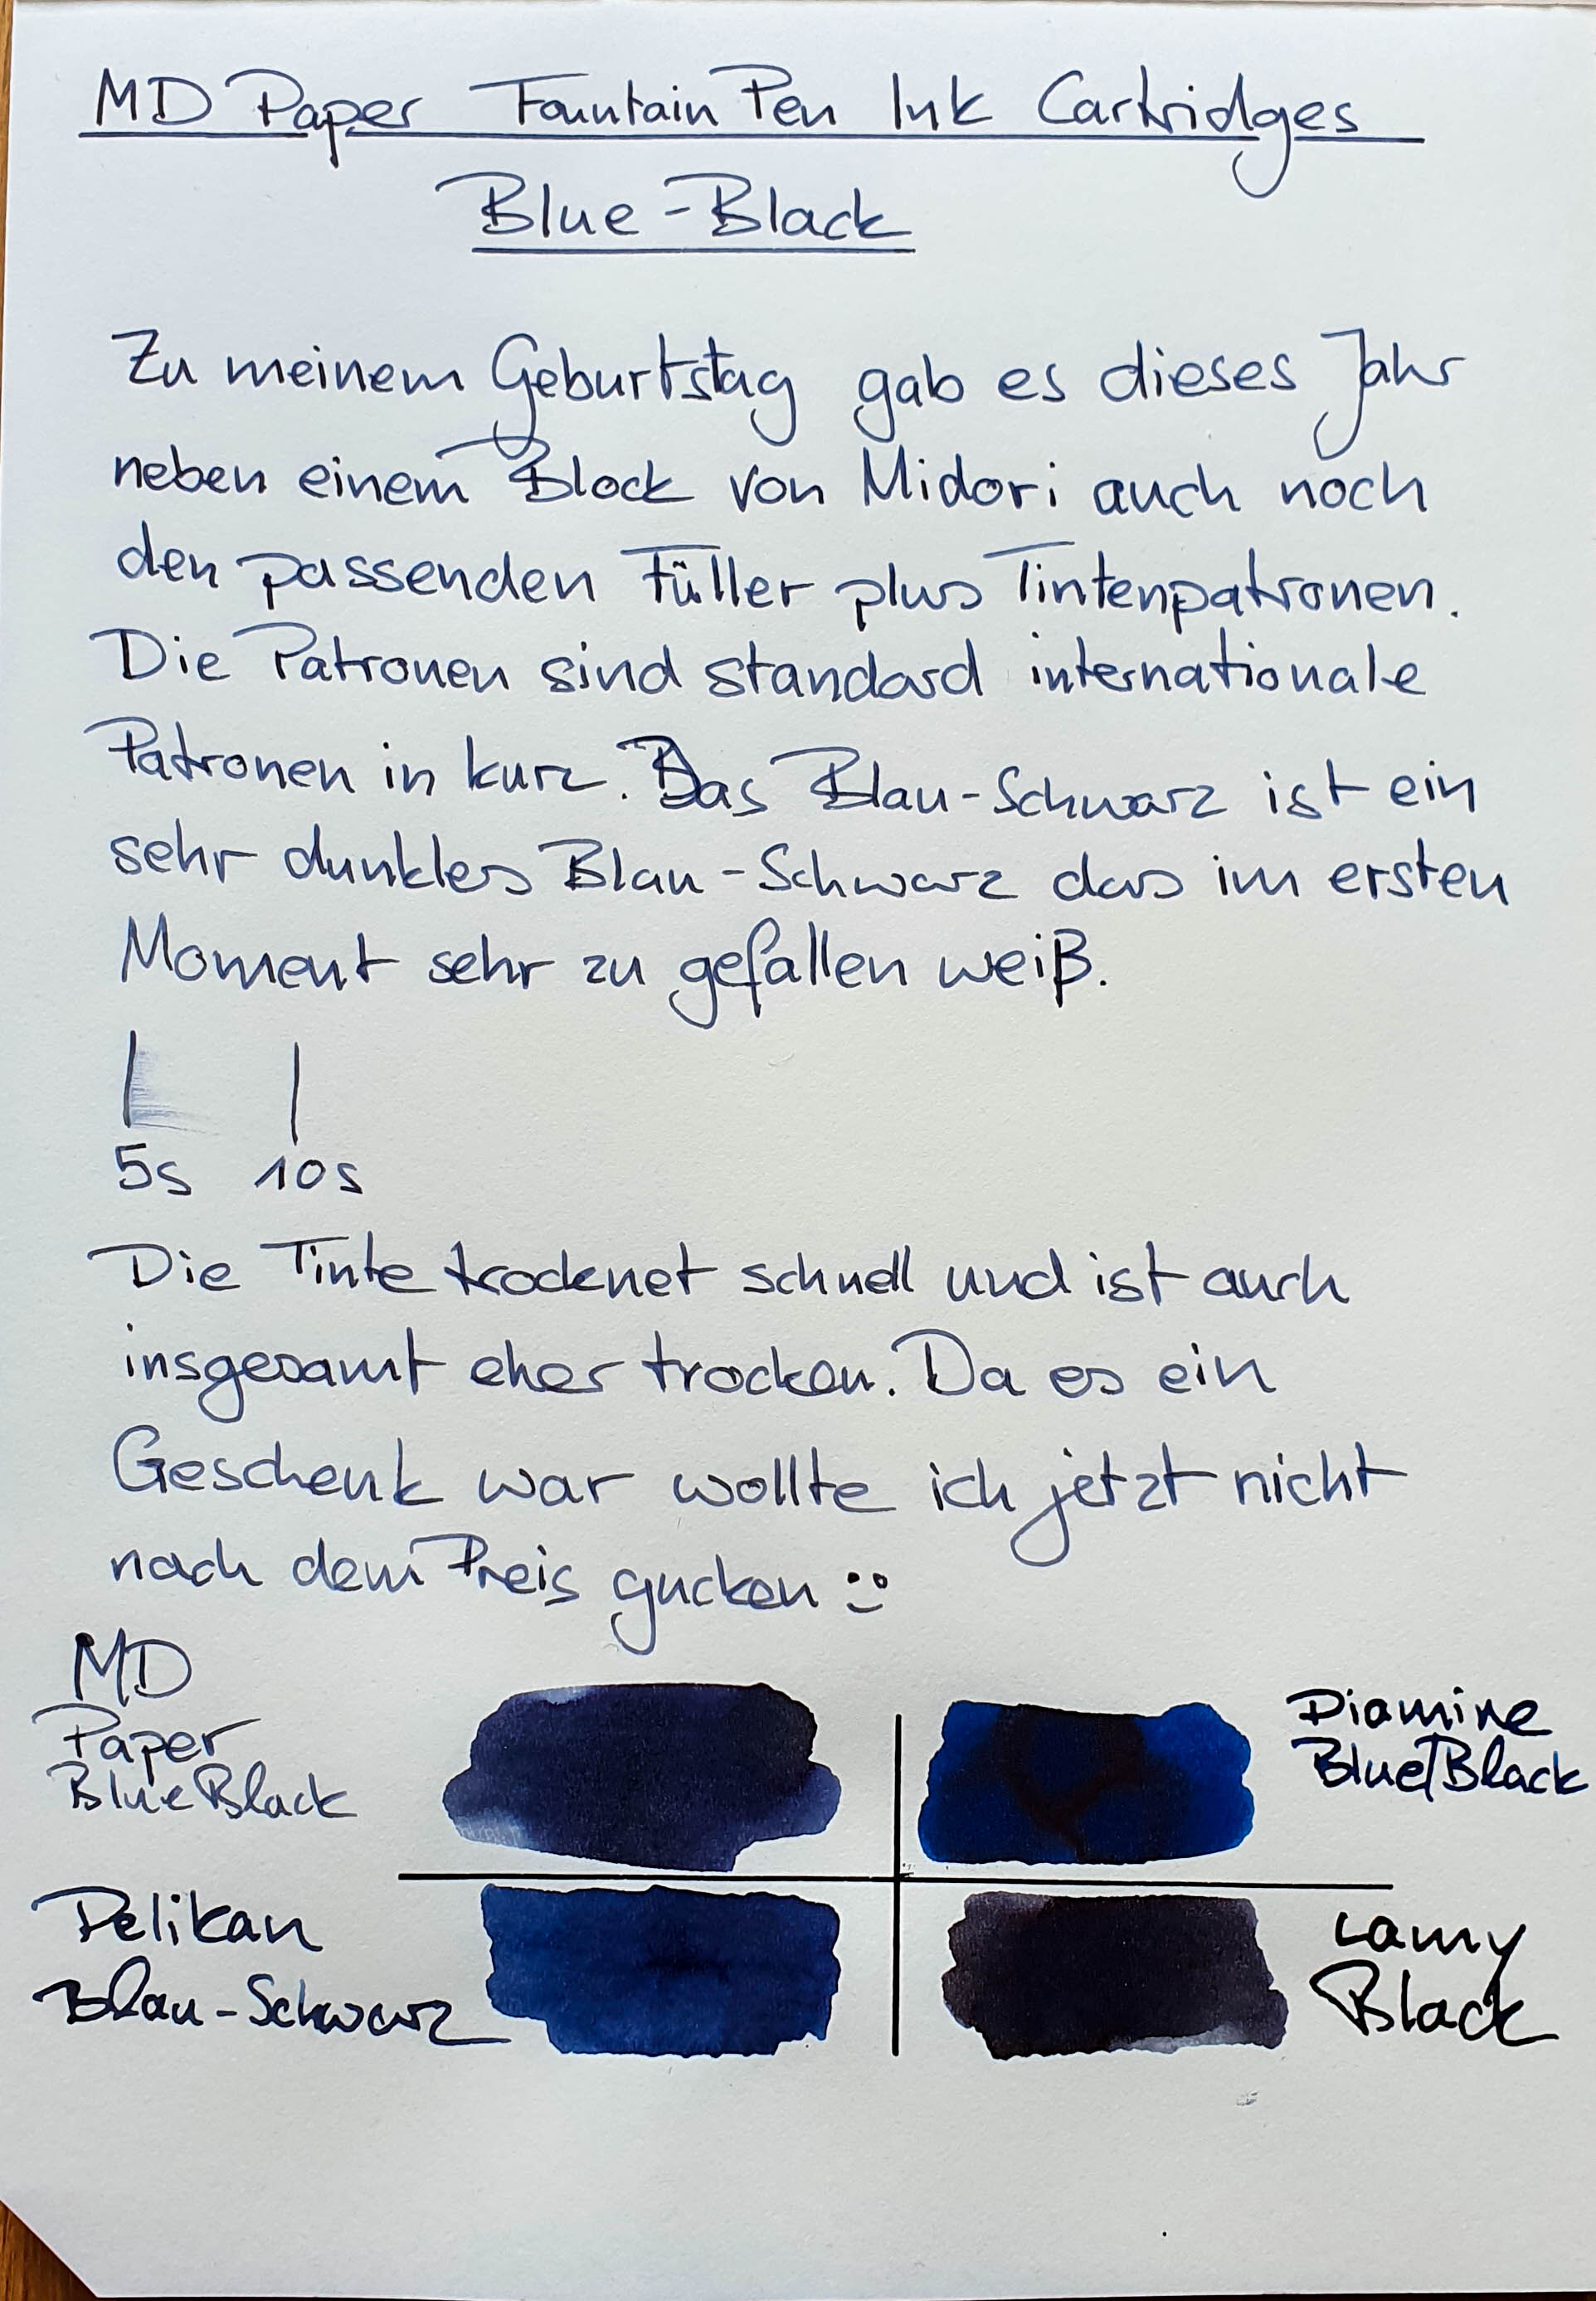 MD Paper Fountain Pen Ink Cartridges
Blue-Black
Zu meinem Geburtstag gab es dieses Jahr
neben einem Block von Midori auch noch
den passenden Füller plus Tintenpatronen.
Die Patronen sind standard internationale
Patronen in kurz. Das Blau-Schwarz ist ein
sehr dunkles Blau-Schwarz das im ersten
Moment sehr zu gefallen weiß.
5s 10s
Die Tinte trocknet schnell und ist auch
insgesamt eher trocken. Da es ein
Geschenk war wollte ich jetzt nicht
nach dem Preis gucken :)
MD
Paper
Blue Black
Diamine
Blue/Black
Pelikan
Blau-Schwarz
Lamy
Black